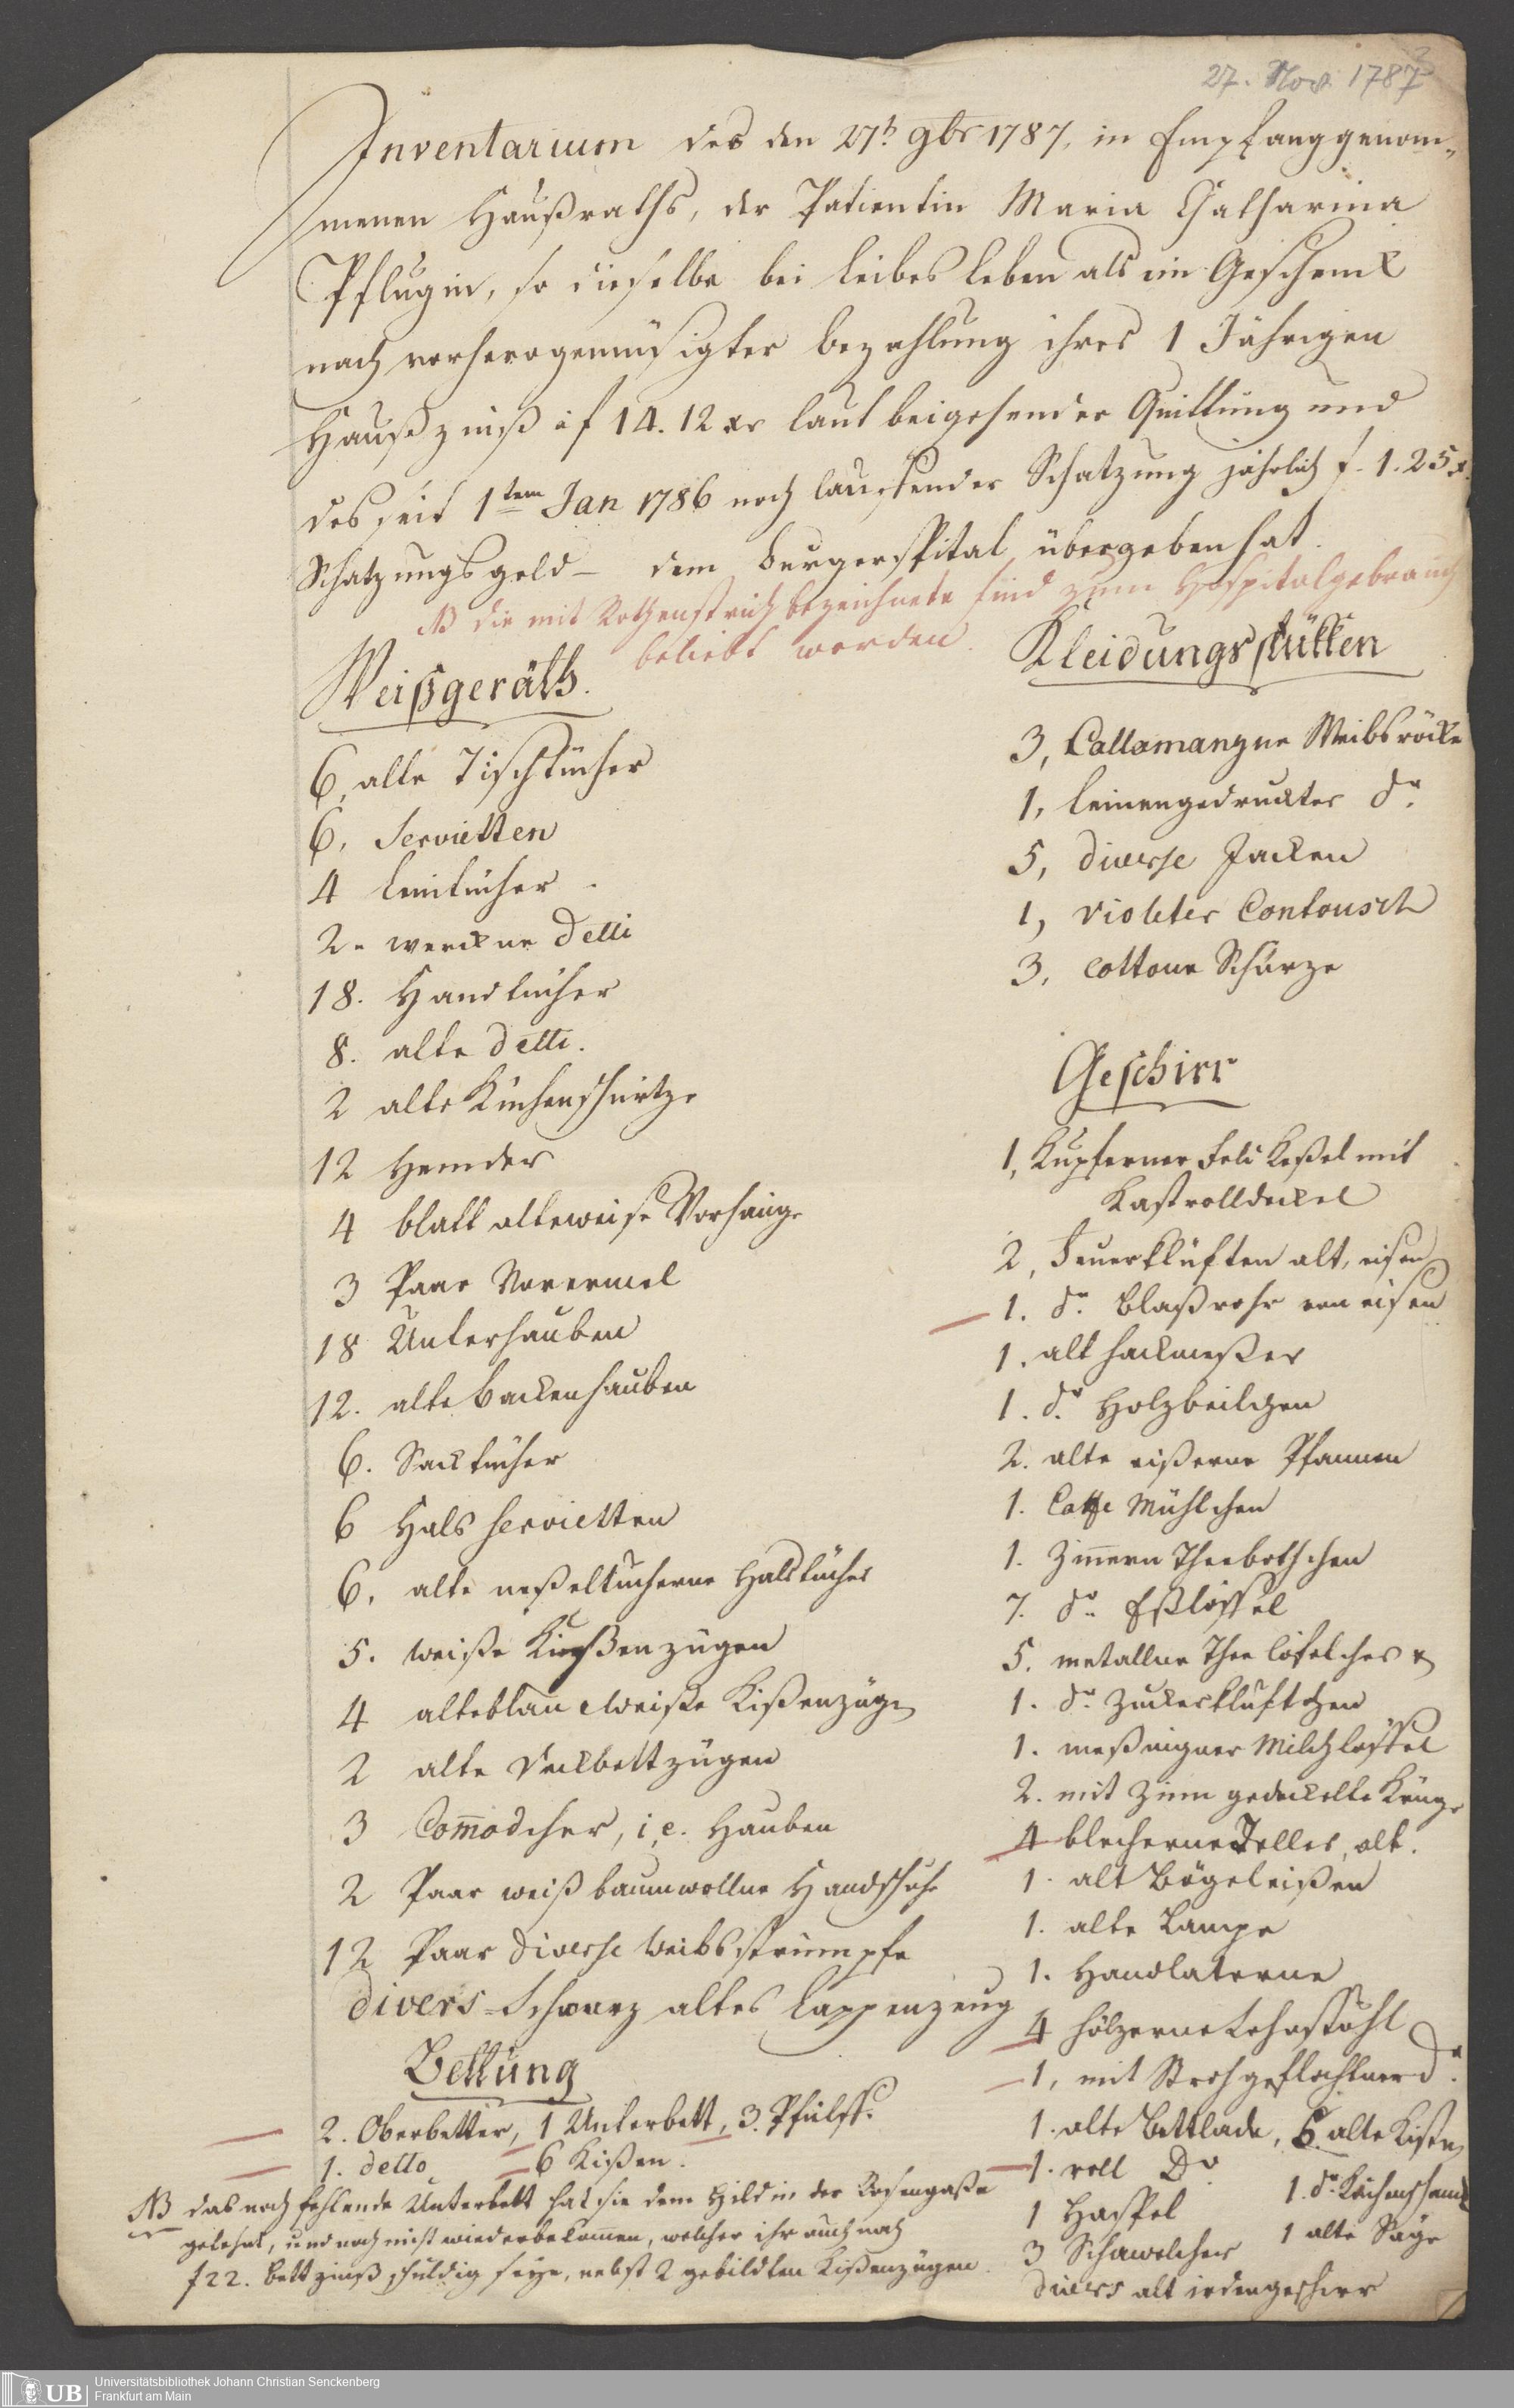 27. Nov. 1787
3
Inventarium des den 27.t 9br 1787. in Empfang genom„
menen Haußraths, der Patientin Maria Catharina
Pflugin, so dieselbe bei Leibes Leben als ein Geschenk
nach vorherogemüsigter bezahlung ihres 1 Jährigen
Haußzinß à f 14. 12 xr laut beigehender Quittung und
des seit 1tem Jan 1786 noch lauffender Schatzung jährlich f. 1. 25 x.
Schatzungsgeld – dem Burgerspital übergeben hat.
NB die mit Rothenstrich bezeichnete sind zum Hospitalgebrauch
beliebt worden.
Weißgeräth.
6, alte Tischtücher
6, Servietten
4 Leintücher
2. werckne Detti
18. Handtücher
8. alte Detti.
2 alte Küchenschürtze
12 Hemder
4 blatt alte weise Vorhänge
3 Paar Vorermel
18 Unterhauben
12. alte Backenhauben
6. Sacktücher
6 Hals servietten
6. alte neßeltucherne Halstücher
5. weiße Kißenzügen
4 alte blau & weiße Kißenzüge
2 alte Deckbettzügen
3 Com̄odcher, i.e. Hauben
2 Paar weiß baumwollne Handschuhe
12 Paar diverse Weibsstrümpfe
divers Schwarz altes Lappenzeug
Bettung
2. Oberbetter, 1 Unterbett, 3. Pfülff.
1. detto 6 Kißen.
NB das noch fehlende Unterbett hat sie dem Hild in der Rosengaße
gelehnt, und noch nicht wiederbekom̄en, welcher ihr auch noch
f 22. Bettzinß schuldig seye, nebst 2 gebildten Kißenzügen.
Kleidungsstükken
3, Callamangne Weibsröcke
1, leinengedruckter do.
5, diverse Jacken
1, violeter Contousch
3, cottone Schürze
Geschirr
1, Kupferner Feld Keßel mit
Kastrolldeckel
2, Feuerklüften alt, eisen
1. do. Blaßrohr von eisen
1. alt Hackmeßer
1. do. Holzbeilchen
2. alte eißerne Pfannen
1. Caffe Mühlchen
1. Zin̄ern Theebothchen
7. do. Eßlöffel
5. metallne Thee löfelcher &
1. do. Zuckerkluftchen
1. meßingner Milchlöffel
2. mit Zinn gedeckelte Krüge
4 blecherne Teller, alt.
1. alt Bögeleißen
1. alte Lampe
1. Handlaterne
4 hölzerne Lehnstühl
1, mit Stroh geflochtner do.
1. alte Bettlade, 6. alte Kisten
1. roll Do. 1. do. Küchenschank
1 Haspel 1 alte Säge
3 Schawelcher
divers alt irdengeschirr
UB Universitätsbibliothek Johann Christian Senckenberg
Frankfurt am Main